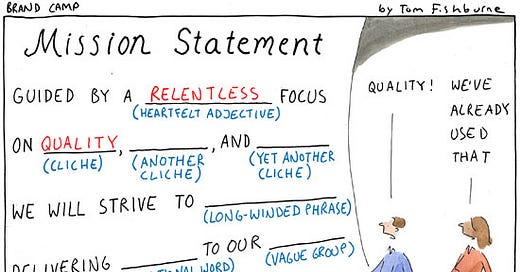 BRAND CAMP
by Tom Fishburne
Mission Statement
GUIDED BY A RELENTLESS FOCUS
(HEARTFELT ADJECTIVE)
ON QUALITY, , AND
(CLICHE) (ANOTHER CLICHE) (YET ANOTHER CLICHE)
WE WILL STRIVE TO
(LONG-WINDED PHRASE)
DELIVERING TO OUR
WORD) (VAGUE GROUP)
QUALITY!
WE'VE
ALREADY
USED
THAT